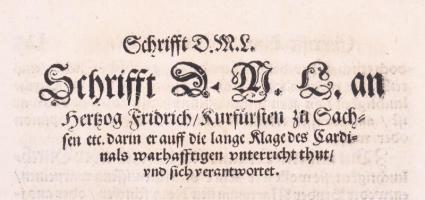 Schrifft D. M. L.
Schrifft D. M. L. an
Hertzog Fridrich/ Kurfürsten zu Sach-
sen etc. darin er auff die lange Klage des Cardi-
nals warhafftigen vnterricht thut/
vnd sich verantwortet.